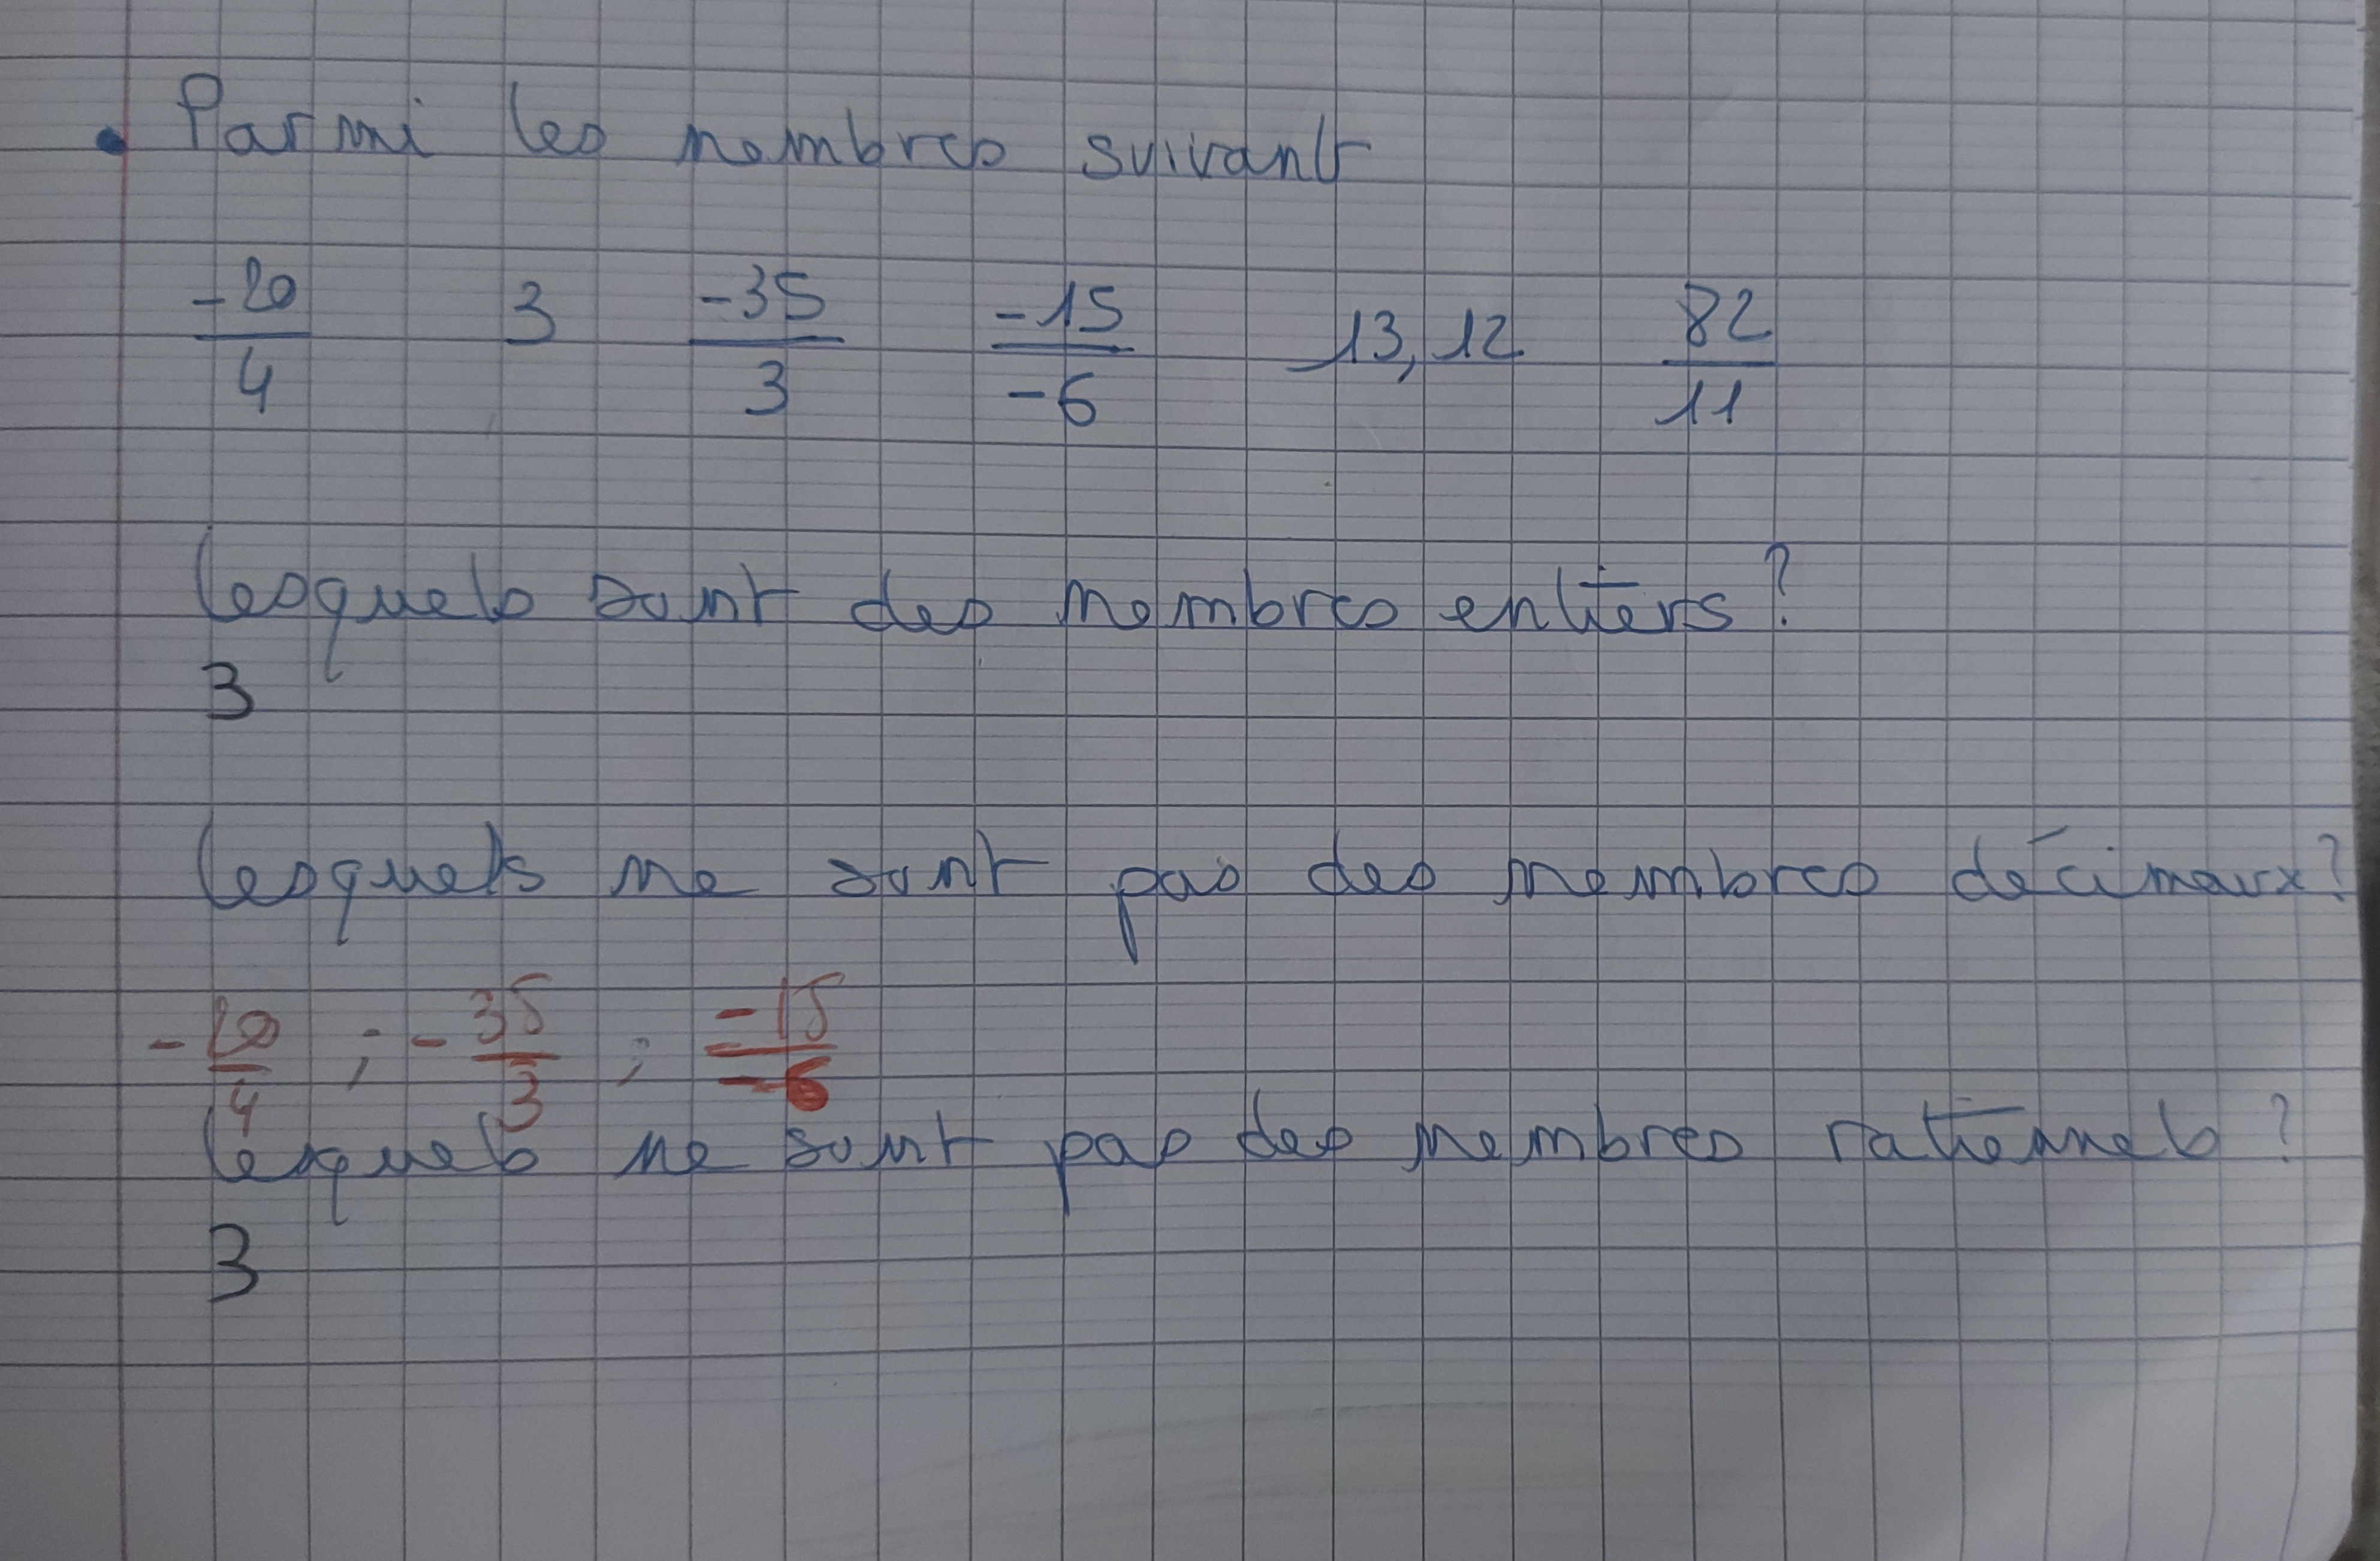 Parmi les nombres suivant
-20/4 3 -35/3 -15/-6 13,12 82/11
lesquels sont des nombres entiers ?
3
lesquels ne sont pas des nombres décimaux ?
-20/4 ; -35/3 ; -15/-6
lesquels ne sont pas des nombres rationnels ?
3